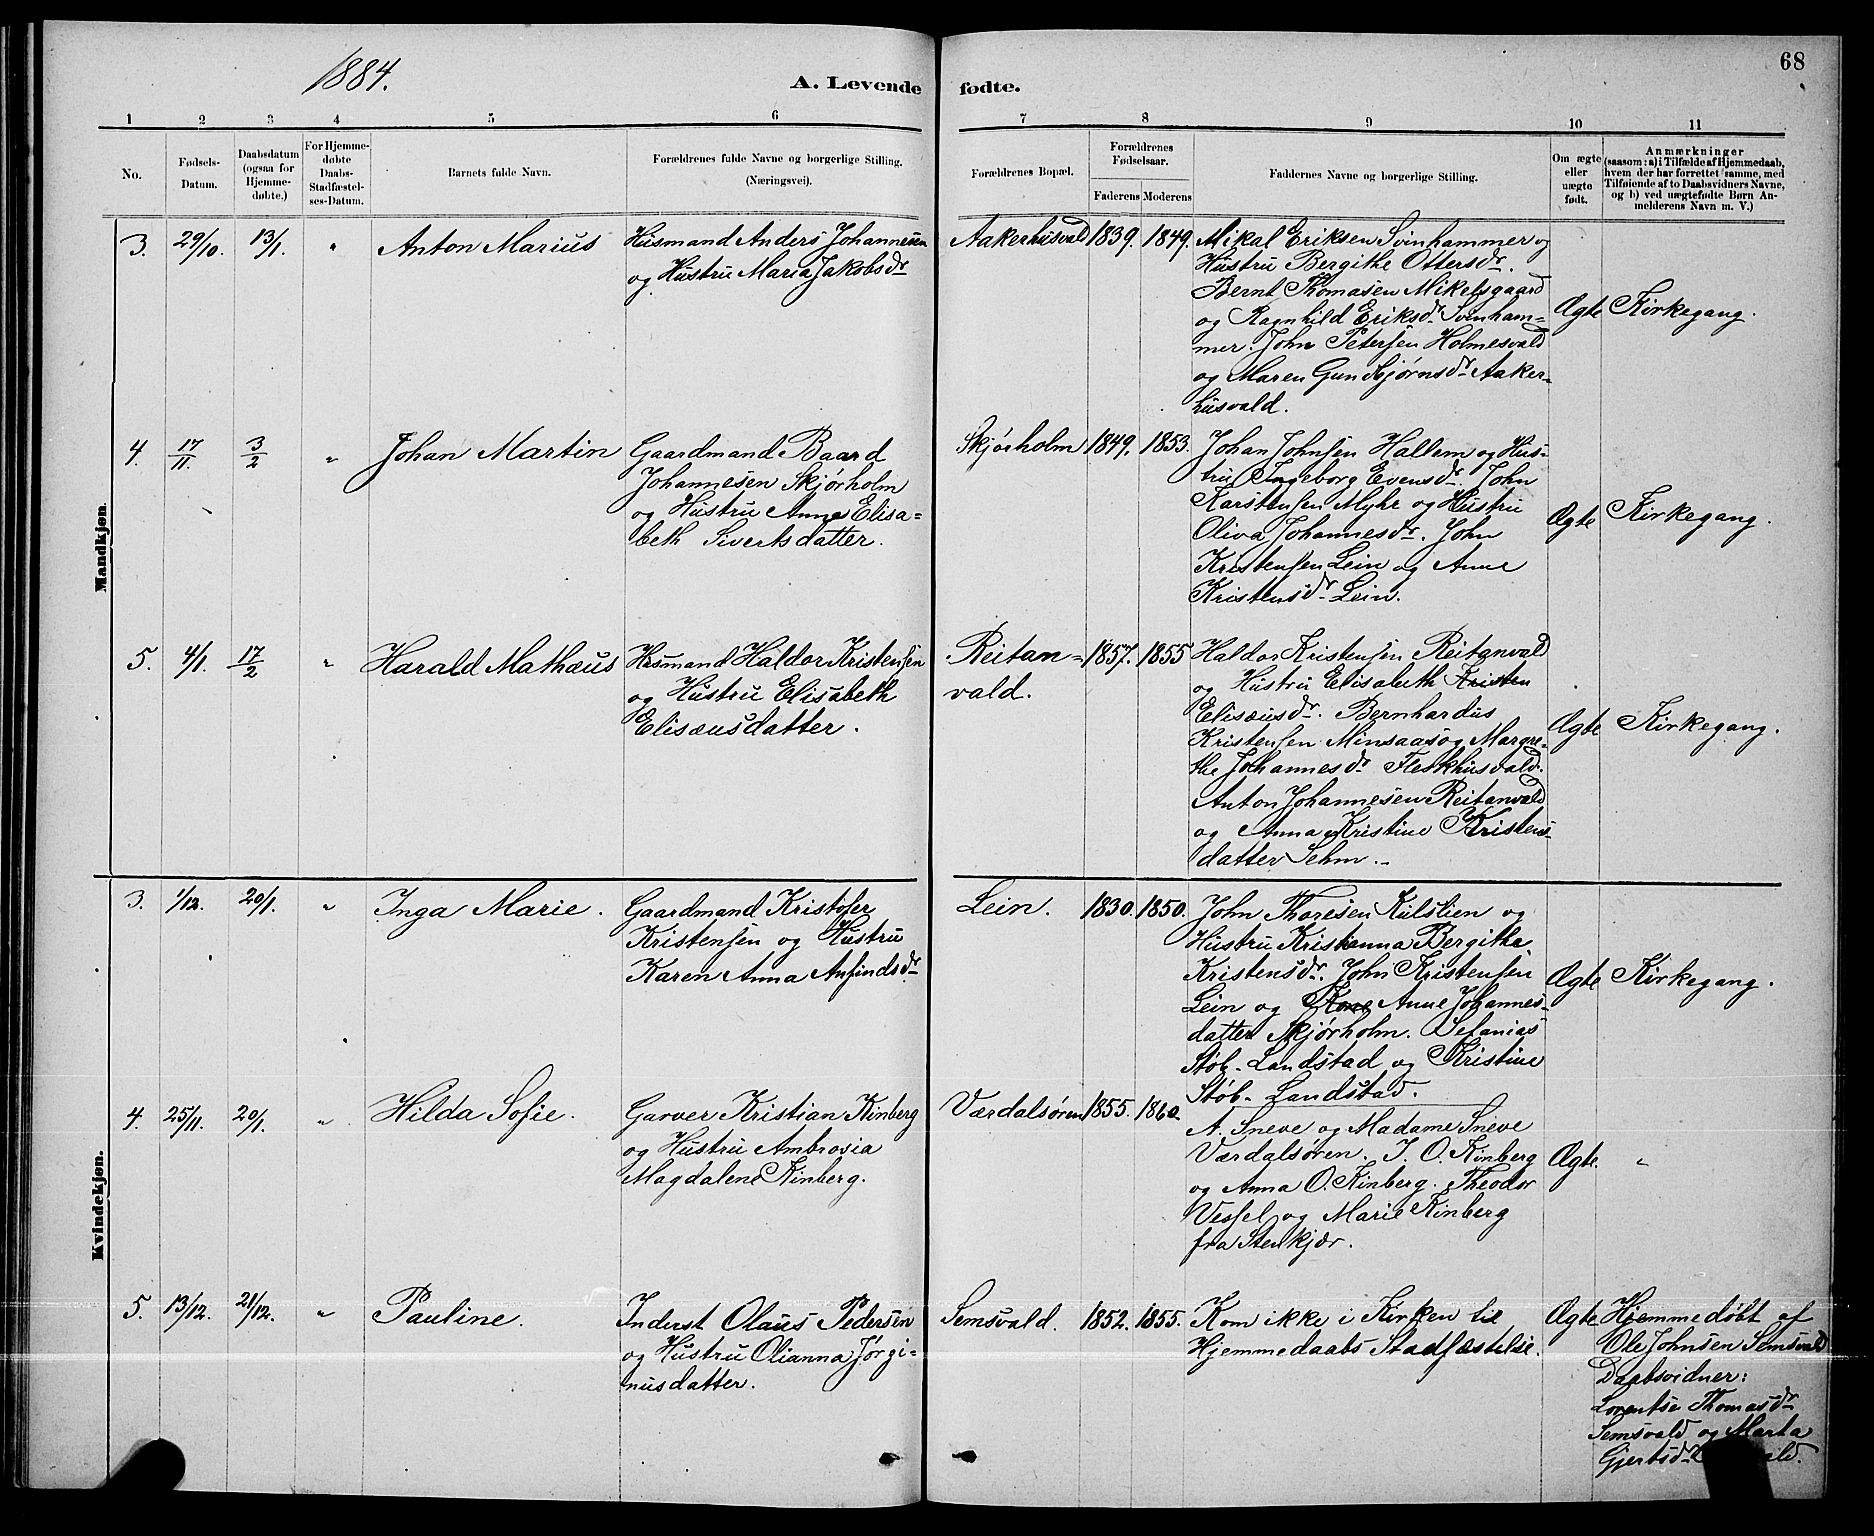 68
1884.
A. Levende fødte.
1 2 3 4 5 6 7 8 9 10 11
No.
Fødsels-
Datum.
Daabsdatum
(ogsaa for
Hjemme-
døbte.)
For Hjemme-
døbte
Daabs-
Stadfæstel-
ses-Datum.
Barnets fulde Navn.
Forældrenes fulde Navne og borgerlige Stilling.
(Næringsvei).
Forældrenes Bopæl.
Forældrenes
Fødselsaar.
Faderens Moderens
Faddernes Navne og borgerlige Stilling.
Om ægte
eller
uægte
født.
Anmærkninger
(saasom: a) i Tilfælde af Hjemmedaab,
hvem der har forrettet samme, med
Tilføiende af to Daabsvidners Navne,
og b) ved uægtefødte Børn An-
melderens Navn m. V.)
Mandkjøn.
3. 29/10. 13/1. " Anton Marius
Husmand Anders Johannesen
og Hustru Maria Jakobsdr
Aakerhusvald 1839. 1849.
Mikal Eriksen Svinhammer og
Hustru Bergithe Ottersdr.
Bernt Thomasen Mikelsgaard
og Ragnhild Eriksdr Svinham=
mer. John Petersen Holmesvald
og Maren Gundbjørnsdr Aaker=
husvald.
Ægte Kirkegang.
4. 17/11. 3/2 " Johan Martin
Gaardmand Baard
Johannesen Skjørholm
og Hustru Anne Elisa=
beth Sivertsdatter.
Skjørholm 1849. 1853.
Johan Johnsen Hallem og Hus=
tru Ingeborg Evensdr. John
Karstensen Myhr og Hustru
Oliva Johannesdr. John
Kristensen Lein og Anne
Kristensdr Lein.
Ægte Kirkegang.
5. 4/1. 17/2 " Harald Mathæus
Husmand Haldor Kristensen
og Hustru Elisabeth
Elisæusdatter.
Reitan=
vald.
1857. 1855
Haldor Kristensen Reitanvald
og Hustru Elisabeth Kristen
Elisæusdr. Bernhardus
Kristensen Minsaas og Margre=
the Johannesdr Fleskhusvald.
Anton Johannesen Reitanvald
og Anna Kristine Kristens=
datter Sehm.
Ægte Kirkegang.
Kvindekjøn.
3. 1/12. 20/1. " Inga Marie.
Gaardmand Kristofer
Kristensen og Hustru
Karen Anna Anfindsdr
Lein. 1830. 1850.
John Thoresen Kulslien og
Hustru Kristianna Bergitha
Kristensdr. John Kristensen
Lein og Kone Anne Johannes=
datter Skjørholm. Sefanias
Støb. Landstad og Kristine
Støb. Landstad.
Ægte Kirkegang.
4. 25/11. 20/1. " Hilda Sofie.
Garver Kristian Kinberg
og Hustru Ambrosia
Magdalene Kinberg.
Værdalsøren 1855. 1860.
A. Sneve og Madame Sneve
Værdalsøren. I. O. Kinberg
og Anna O. Kinberg. Theodor
Vessel og Marie Kinberg
fra Stenkjær.
Ægte. "
5. 13/12. 21/12. " Pauline.
Inderst Olaus Pedersen
og Hustru Olianna Jørgi=
nusdatter.
Semsvald. 1852. 1855.
Kom ikke i Kirken til
Hjemmedaabs Stadfæstelse.
Ægte
Hjemmedøbt af
Ole Johnsen Semsvald
Daabsvidner:
Lorentse Thomasdr
Semsvald og Marta
Gjertsdr